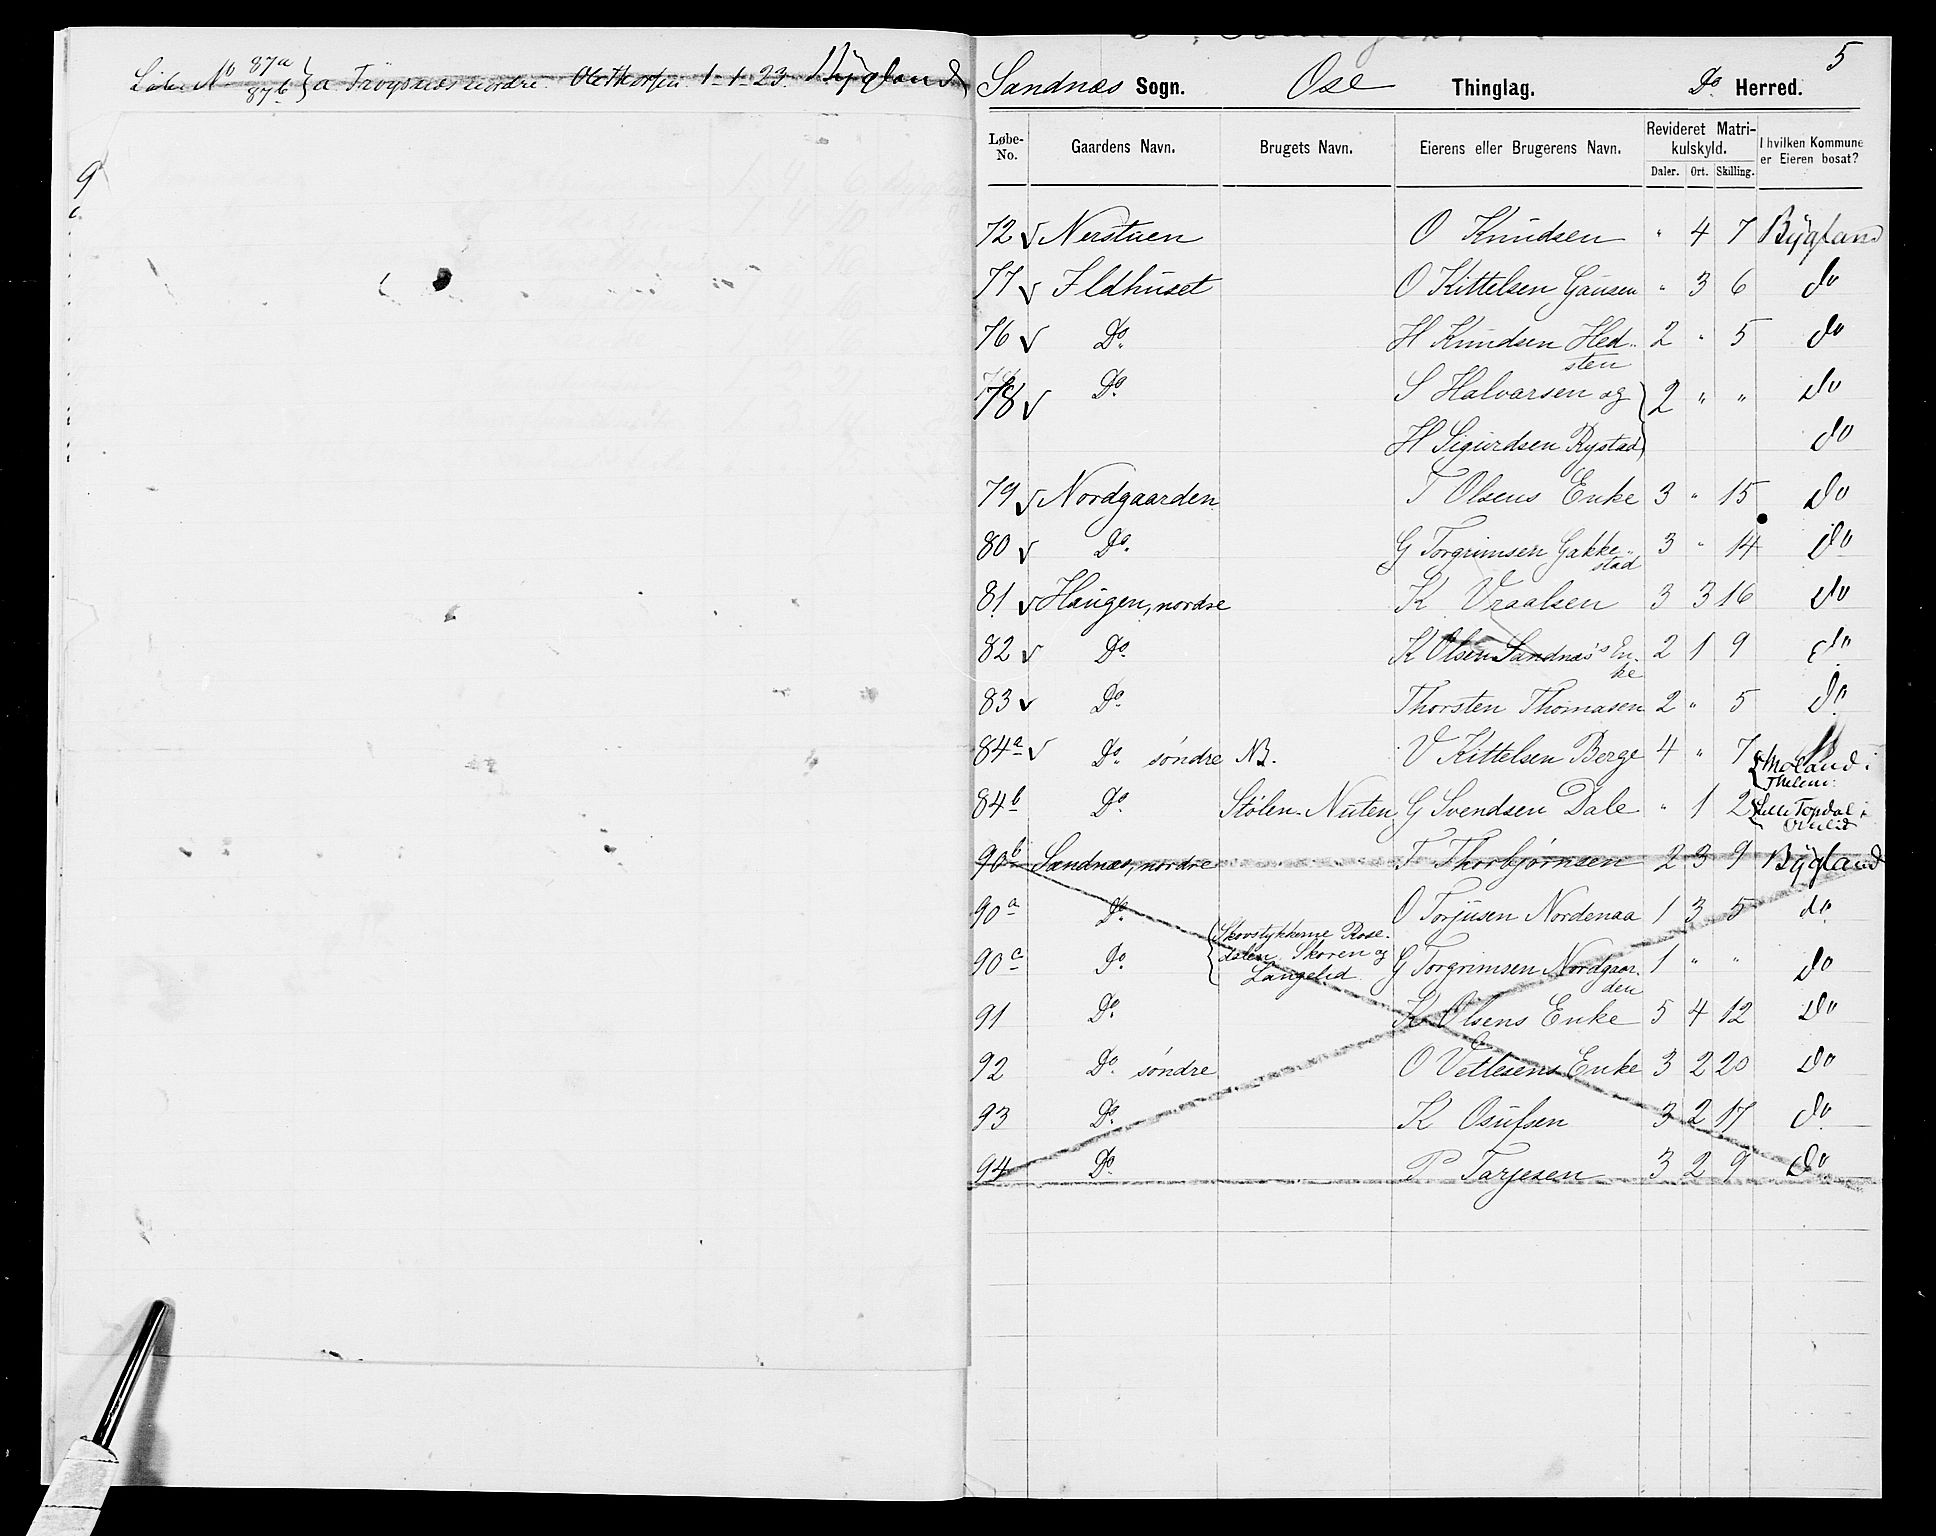 Løbe No 87a 87b } a Frøysnæs nordre. Ole Thorsen 1 - 1 - 23. Bygland
9
5
Sandnæs Sogn. Ose Thinglag. Do Herred.
Løbe-No. Gaardens Navn. Brugets Navn. Eierens eller Brugerens Navn. Revideret Matrikulskyld. Daler. Ort. Skilling. I hvilken Kommune er Eieren bosat?
72 Nerstuen O Knudsen " 4 7 Bygland
77 Ildhuset O Kittelsen Gausen " 3 6 do
76 Do. H Knudsen Hedsten 2 " 5 do
78 Do. S Halvarsen og } 2 " " do
H Sigurdsen Rystad do
79 Nordgaarden T Olsens Enke 3 " 15 do
80 Do. G Torgrimsen Gakkestad 3 " 14 do
81 Haugen, nordre K Vraalsen 3 3 16 do
82 Do. K Olsen Sandnæs's Enke 2 1 9 do
83 Do. Thorsten Thomasen 2 " 5 do
84a Do. søndre NB. V Kittelsen Berge 4 " 7 Moland i Thelem:
84b Do. Stølen Nuten G Svendsen Dale " 1 2 Lille Topdal i
90b Sandnæs, nordre T Thorbjørnsen 2 3 9 Bygland
90a Do. O Torjusen Nordenaa 1 3 5 do
90c Do. { Skovstykkerne Rosedalen, Skoren og Langelid G Torgrimsen Nordgaarden 1 " " do
91 Do. K Olsens Enke 5 4 12 do
92 Do. søndre O Vetlesens Enke 3 2 20 do
93 Do. K Osufsen 3 2 17 do
94 Do. P Tarjesen 3 2 9 do